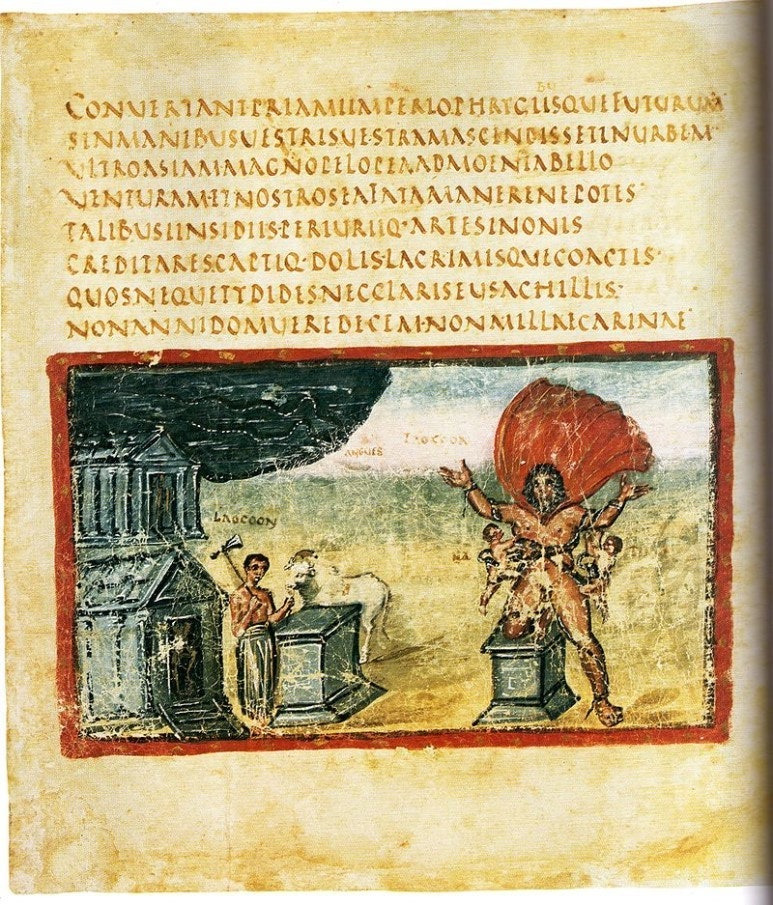 BU
CONUERTANTPRIAMIIMPERIOPHRYGIISQUEFUTURUM
SINMANIBUSUESTRISUESTRAMASCENDISSETINURBEM
ULTROASIAMMAGNOPELOPEAADMOENIABELLO
UENTURAM·ETNOSTROSEAFATAMANERENEPOTES
TALIBUSINSIDIIS·PERIURIIQ·ARTESINONIS
CREDITARES·CAPTIQ·DOLIS·LACRIMISQUECOACTIS
QUOSNEQUETYDIDESNECCLARISEUSACHILLIS·
NONANNIDOMUEREDECEM·NONMILLECARINAE
LAOCOON
ANGUES
LAOCOON
NA